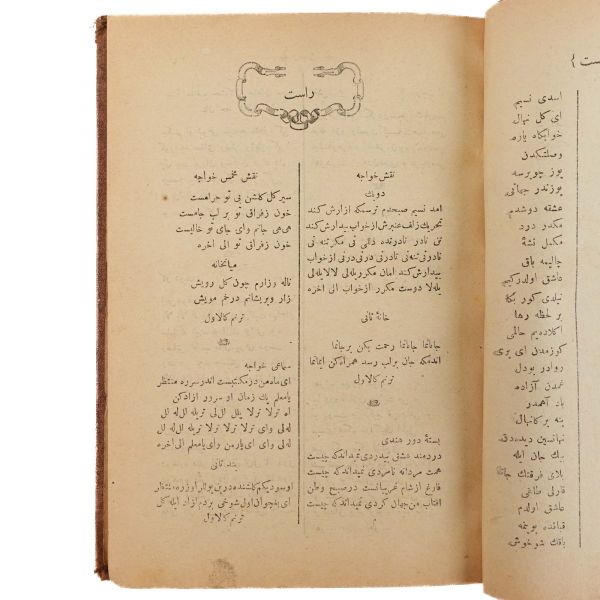 راست
نقش خواجه
دویك
امد نسیم صبحدم ترسمکه ازارش کند
تحریك زلف عنبرش ازخواب بیدارش کند
تن نادر نادرنده دلنی تی مکرر تنه نی
تنه نی تنه نی نادرنی درنی درنی ازخواب
بیدارش کند امان مکرر یله لی لالا یله لی
یله لا دوست مکرر ازخواب الی اخره
خانهٔ ثانی
جانانما جانانما رحمت بکن برجانما
اندمکه جان برلب رسد همراه کن ایمانما
ترنم کالاول
بستهٔ دور هندی
دردمند عشق بیدردی نمیداندکه چیست
همت مردانه نامردی نمیداندکه چیست
فارغ ازشام غریبانست درصبح وطن
افتاب من جهان کردی نمیداندکه چیست
نقش مخمس خواجه
سیر کل کلشن بی تو حرامست
خون زفراقی تو بر لب جامست
هی هی جانم وای جای تو خالیست
خون زفراقی تو الی اخره
میانخانه
ناله وزارم چون کل رویش
زار وپریشانم درغم مویش
ترنم کالاول
سماعی خواجه
ای ماه من درمکتبست اندر سرره منتظر
یامعلم یك زمان او سرو ازادکن
اه ترلا ترلا یلل للی تریله لل له لل
له لی وای ترلا ترلا تریله لل له لل
له لی وای ای یارمن وای یامعلم الی اخره
بند ثانی
ترنم کالاول
اسدی نسیم
ای کل نهال
خوابکاه یاره
وصلتکدن
یوز چویرسه
یوزندر جهانی
عشقه دوشدم
مکدر درد
مکمل نشئهٔ
چالیمه باق
عاشق اولدرکیم
نیلدی کور بکا
بر لحظه رها
اکلادیم حالمی
کوزمدن ای پری
روادر بودل
غمدن آزاده
باد آهمدر
ینه بر کلنهال
نهانسین دیده دن
بیك جان ایله
بلای فرقتك جانا
قارلی طاغی
عاشق اولدم
قیاننده بویمه
باقك شو خوشی